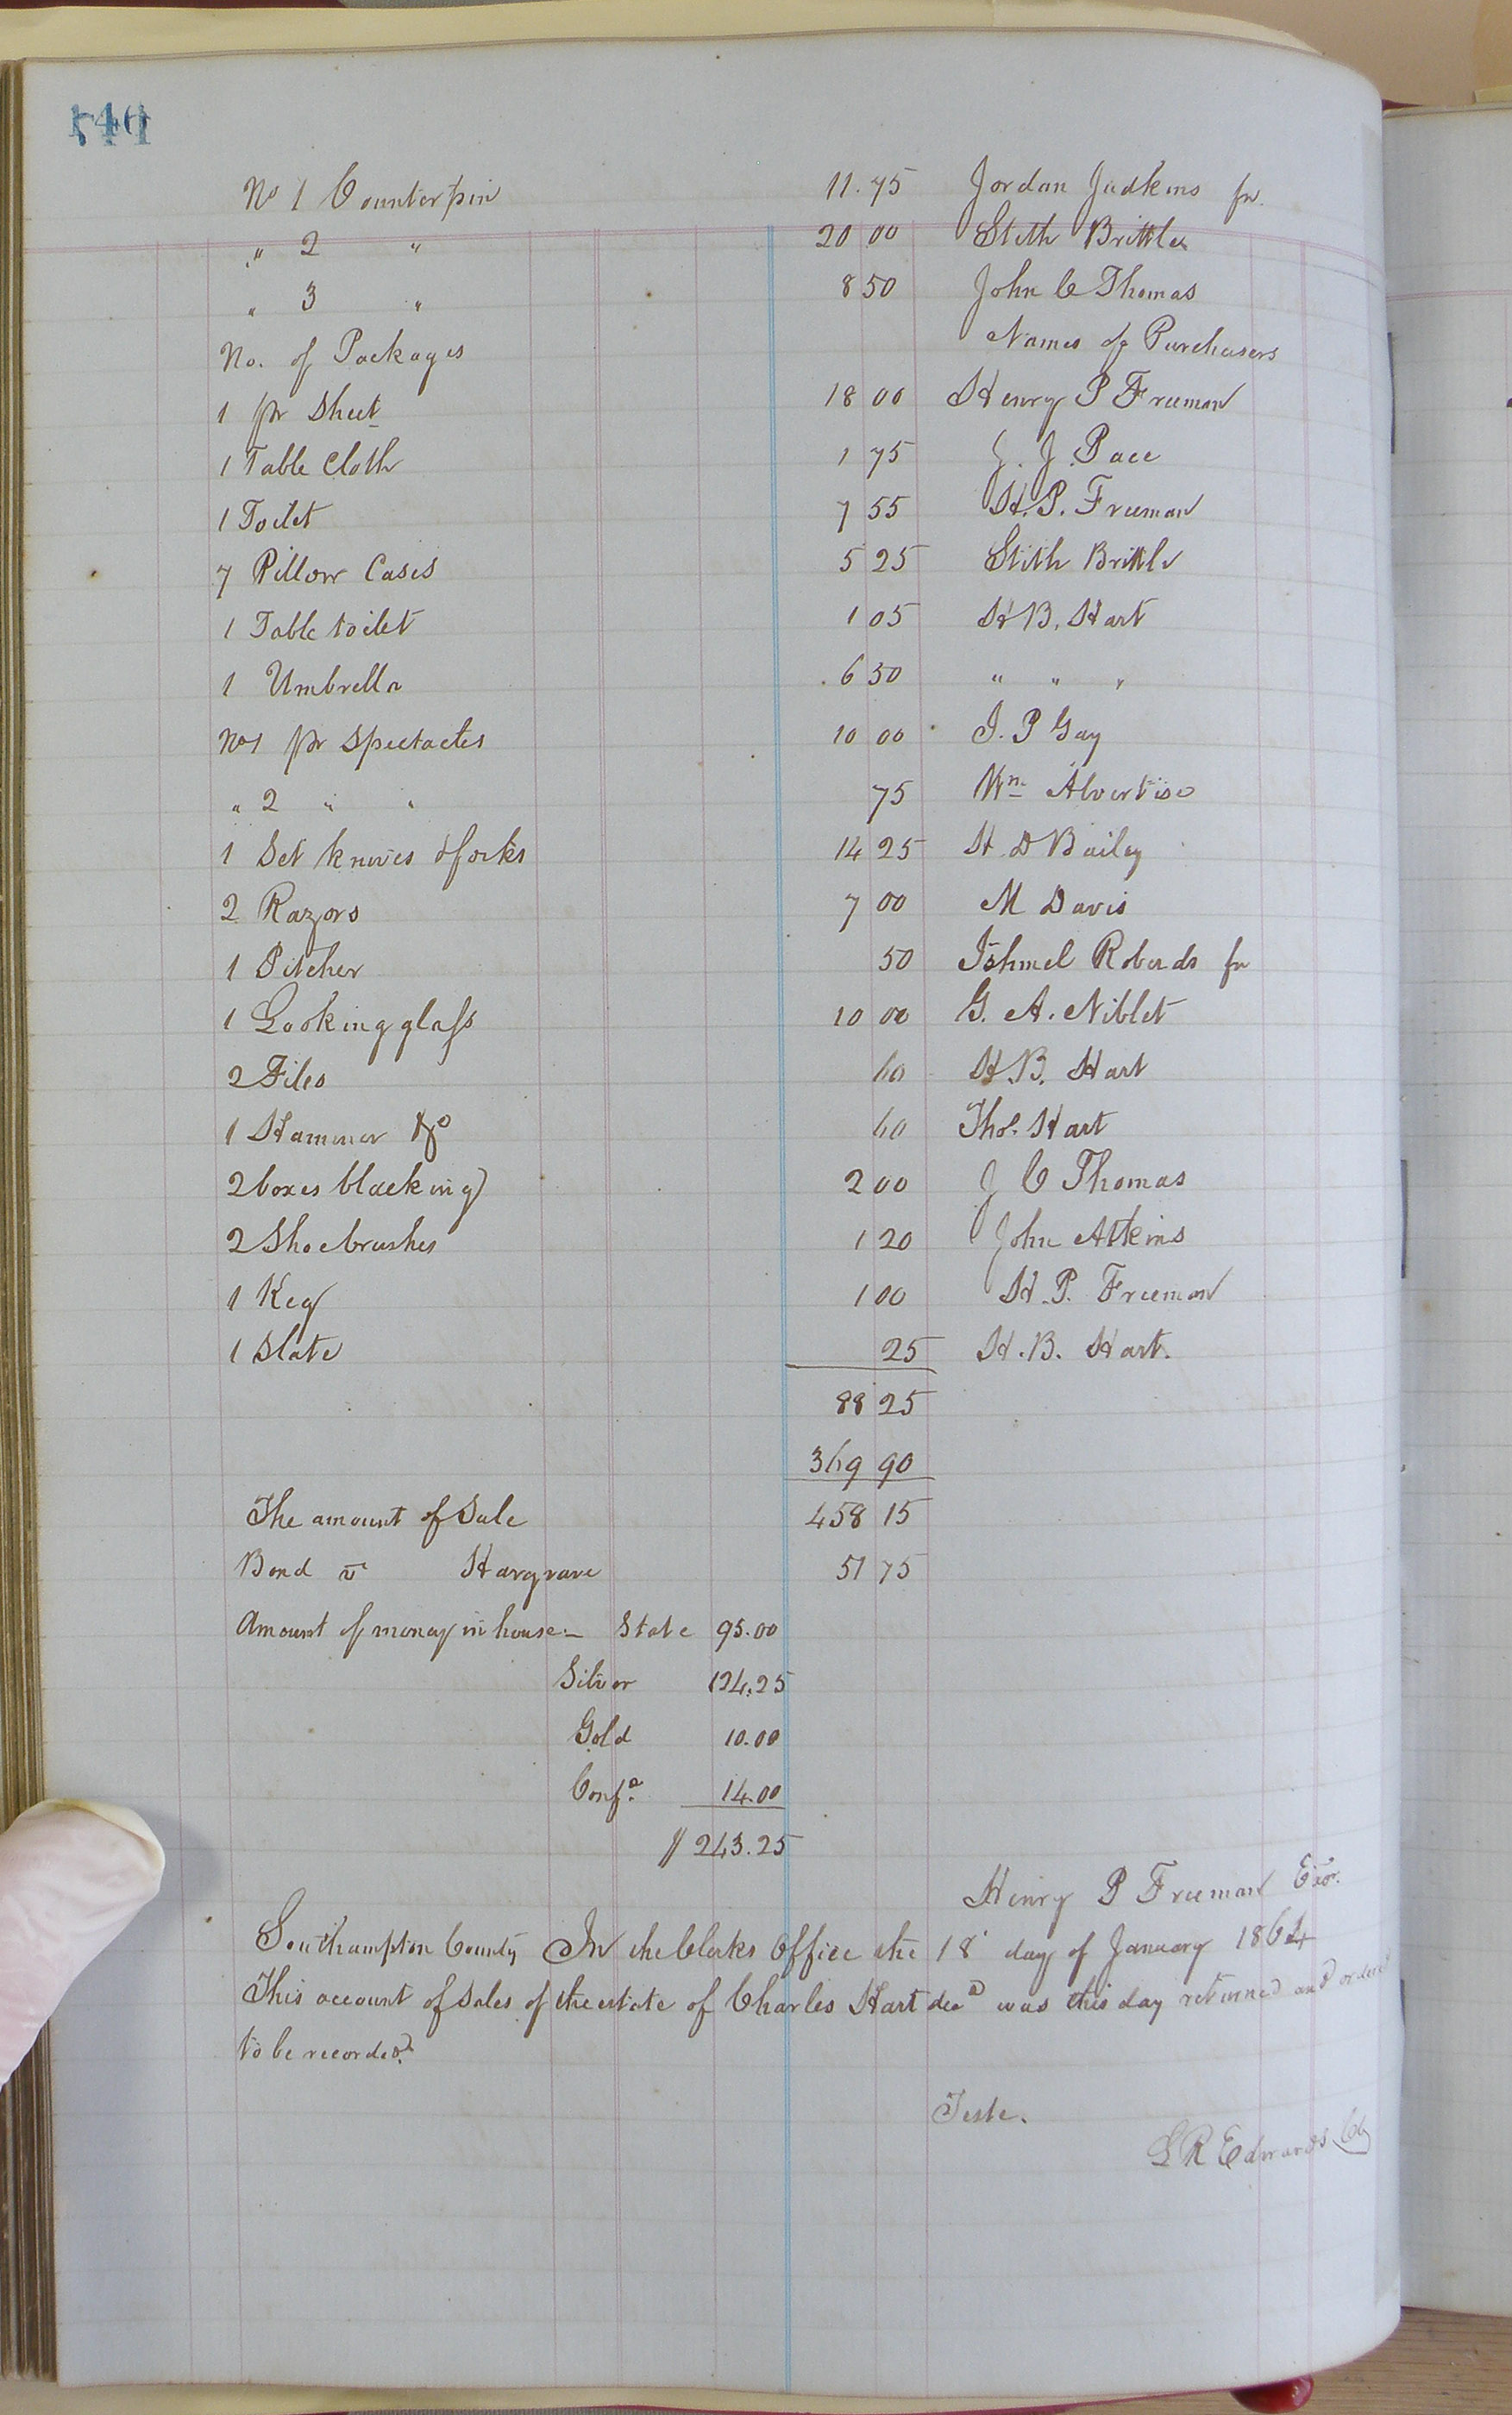 No 1 Counterpin 11.75 Jordan Judkins fn.
" 2 " 20 00 Stith Brittle
" 3 " 8 50 John C Thomas
No. of Packages Names of Purchasers
1 pr Sheet 18 00 Henry P Freeman
1 Table Cloth 1 75 J. J. Pace
1 Toilet 7 55 H. P. Freeman
7 Pillow Cases 5 25 Stith Brittle
1 Table toilet 1 05 H B. Hart
1 Umbrella 6 50 " " "
No 1 pr Spectacles 10 00 J. P Gay
" 2 " " 75 Wm. Alvertiso
1 Set knives & forks 14 25 H. D Bailey
2 Razors 7 00 M Davis
1 Pitcher 50 Ishmel Roberds fn
1 Looking glass 10 00 G. A. Niblet
2 Files 60 H. B. Hart
1 Hammer &c 60 Tho. Hart
2 boxes blacking 2 00 J C Thomas
2 Shoebrushes 1 20 John Atkins
1 Keg 1 00 H. P. Freeman
1 Slate 25 H. B. Hart.
88 25
369 90
The amount of Sale 458 15
Bond v Hargrave 51 75
Amount of money in house - State 95.00
Silver 124.25
Gold 10.00
Confa. 14.00
$ 243.25
Henry P Freeman Exor.
Southampton County In the Clerks Office the 18 day of January 1864
This account of Sales of the estate of Charles Hart decd was this day returned and ordered
to be recorded.
Teste.
L R Edwards Clk